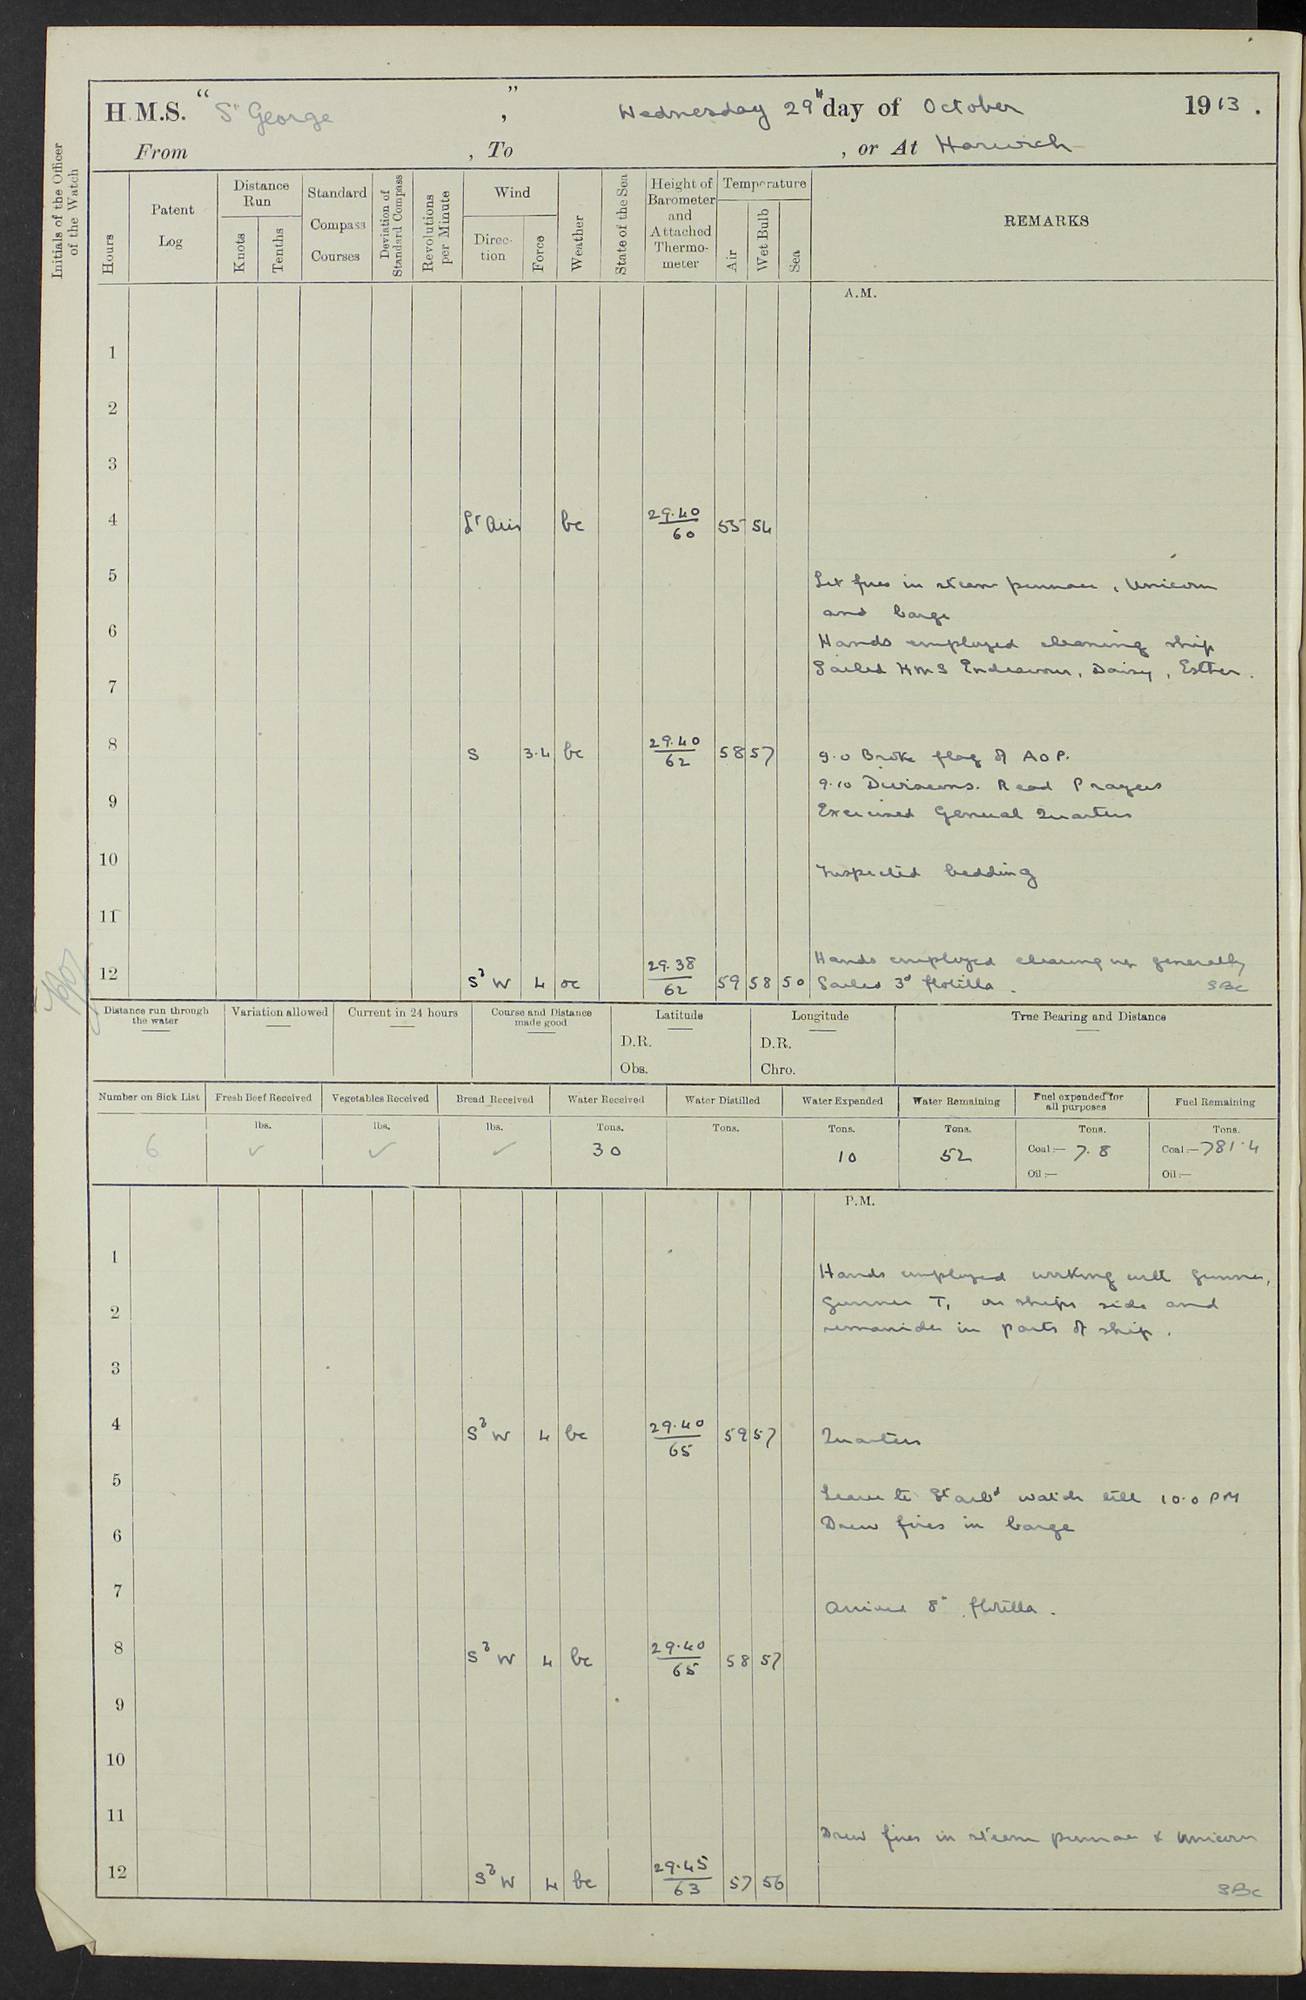 H.M.S. "St George", Wednesday 29th day of October 1913.
From , To , or At Harwich
Initials of the Officer of the Watch
Hours
Patent Log
Distance Run
Knots
Tenths
Standard Compass Courses
Deviation of Standard Compass
Revolutions per Minute
Wind
Direction
Force
Weather
State of the Sea
Height of Barometer and Attached Thermometer
Temperature
Air
Wet Bulb
Sea
REMARKS
A.M.
1
2
3
4 Lt Airs bc 29.40/60 55 54
5 Lit fires in steam pinnace, Unicorn
and barge
6 Hands employed cleaning ship
Sailed HMS Endeavour, Daisy, Esther.
7
8 S 3.4 bc 29.40/62 58 57 9.0 Broke flag of A O P.
9.10 Divisions. Read Prayers
9 Exercised General Quarters
10 Inspected bedding
11
Hands employed clearing up generally
12 S b W 4 oc 29.38/62 59 58 50 Sailed 3d flotilla. SBc
Distance run through the water
Variation allowed
Current in 24 hours
Course and Distance made good
Latitude
D.R.
Obs.
Longitude
D.R.
Chro.
True Bearing and Distance
Number on Sick List Fresh Beef Received Vegetables Received Bread Received Water Received Water Distilled Water Expended Water Remaining Fuel expended for all purposes Fuel Remaining
lbs. lbs. lbs. Tons. Tons. Tons. Tons. Tons. Tons.
6 ✓ ✓ ✓ 30 10 52 Coal:— 7.8 Coal:— 781.4
Oil:— Oil:—
P.M.
1
Hands employed working with Gunner,
2 Gunner T, on ships side and
remainder in parts of ship.
3
4 S b W 4 bc 29.40/65 59 57 Quarters
5
Leave to Starbd watch till 10.0 PM
6 Drew fires in barge
7
Arrived 8th flotilla.
8 S b W 4 bc 29.40/65 58 57
9
10
11
Drew fires in steam pinnace & Unicorn
12 S b W 4 bc 29.45/63 57 56
SBc